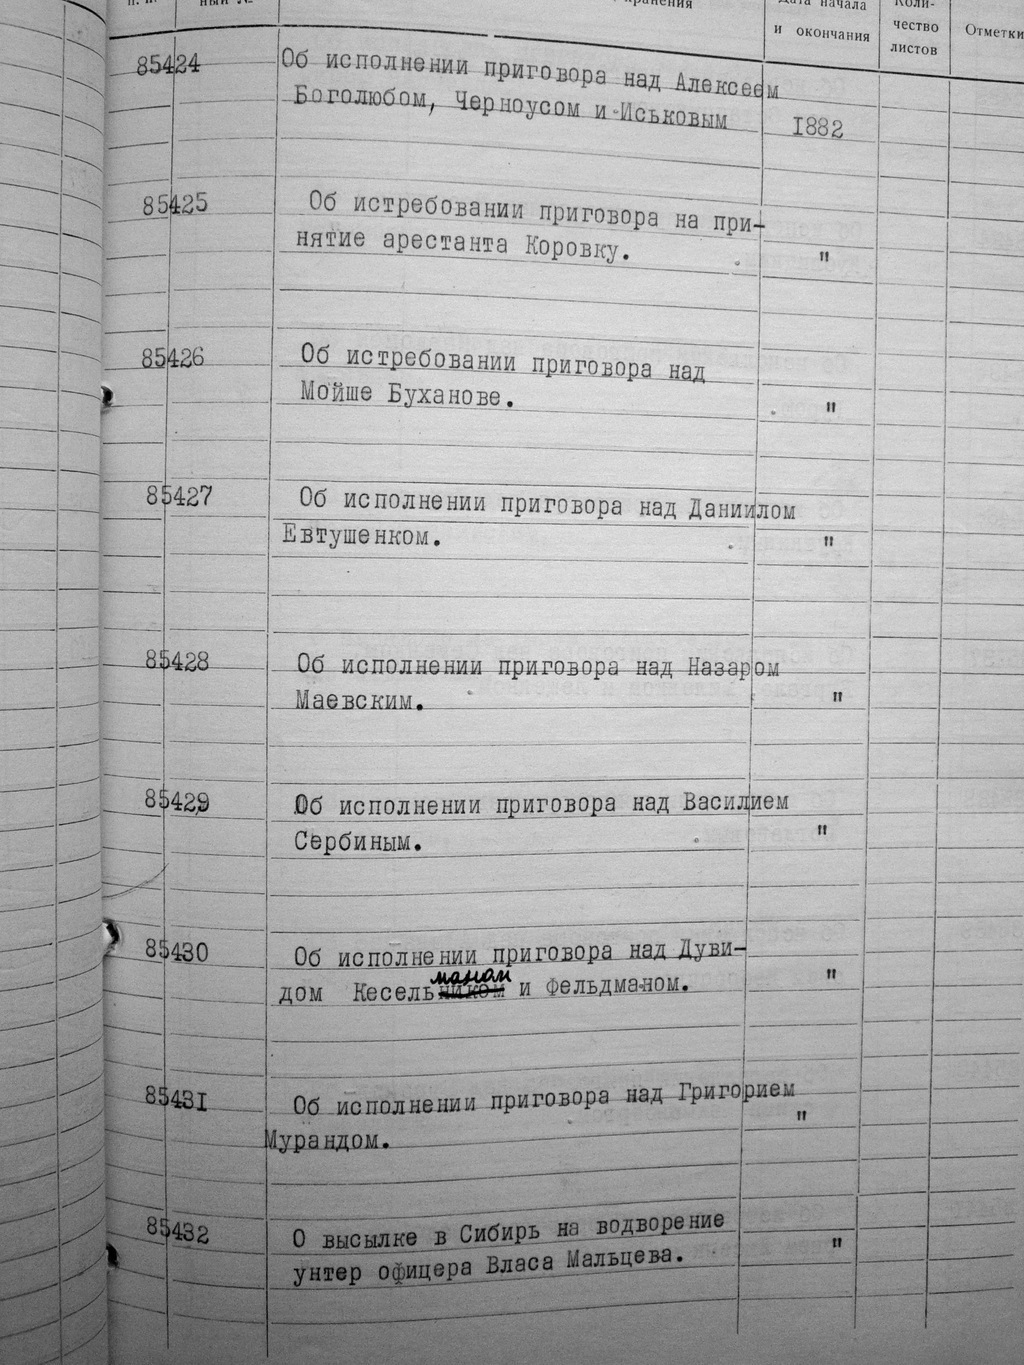 Дата начала
и окончания
Коли-
чество
листов
Отметки
85424 Об исполнении приговора над Алексеем
Боголюбом, Черноусом и Иськовым 1882
85425 Об истребовании приговора на при-
нятие арестанта Коровку. "
85426 Об истребовании приговора над
Мойше Буханове. "
85427 Об исполнении приговора над Даниилом
Евтушенком. "
85428 Об исполнении приговора над Назаром
Маевским. "
85429 Об исполнении приговора над Василием
Сербиным. "
85430 Об исполнении приговора над Дуви-
маном
дом Кесельником и Фельдманом. "
85431 Об исполнении приговора над Григорием
Мурандом. "
85432 О высылке в Сибирь на водворение
унтер офицера Власа Мальцева. "